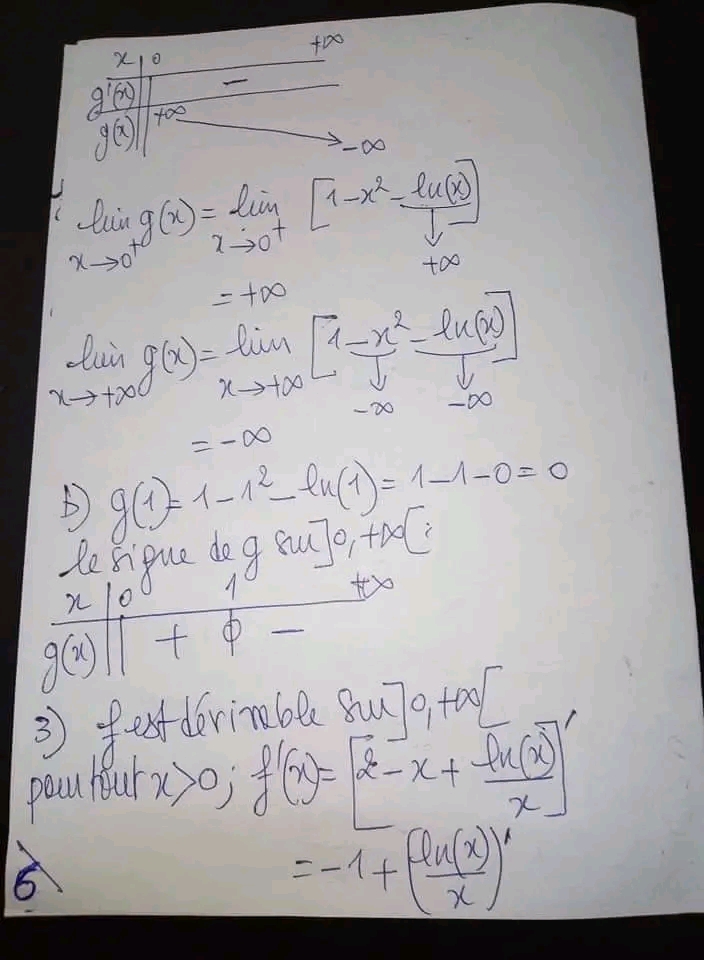 x | 0 +∞
g'(x) || −
g(x) || +∞ → −∞
lim g(x) = lim [1 − x² − ln(x)]
x→0⁺ x→0⁺ ↓
+∞
= +∞
lim g(x) = lim [1 − x² − ln(x)]
x→+∞ x→+∞ ↓ ↓
−∞ −∞
= −∞
b) g(1) = 1 − 1² − ln(1) = 1 − 1 − 0 = 0
le signe de g sur ]0, +∞[ :
x | 0 1 +∞
g(x) || + 0 −
3) f est dérivable sur ]0, +∞[
pour tout x > 0 ; f'(x) = [2 − x + ln(x)/x]'
= −1 + (ln(x)/x)'
6